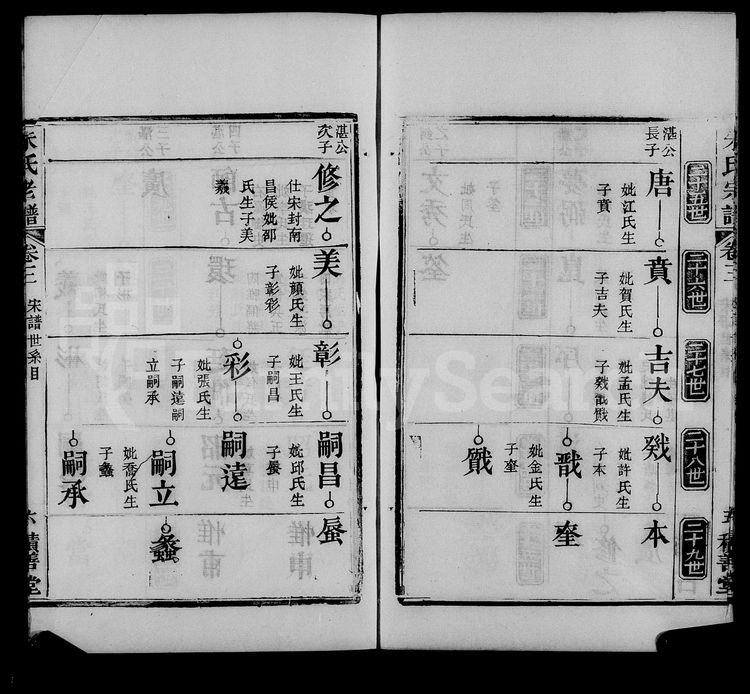 朱氏宗譜
卷三
二十五世
二十六世
二十七世
二十八世
二十九世
湛公
長子
唐
妣江氏生
子賁
賁
妣賀氏生
子吉夫
吉夫
妣孟氏生
本
妣許氏生
子本
戬
妣金氏生
子奎
奎
積善堂
湛公
次子
修之
仕宋封南
昌侯妣邵
氏生子美
美
妣顏氏生
子彰彩
彰
妣王氏生
子嗣昌
嗣昌
妣邱氏生
子蜃
蜃
彩
妣張氏生
子嗣遠嗣
立嗣承
嗣遠
嗣立
螽
嗣承
妣喬氏生
子螽
朱氏老譜
卷三
宋譜世系目
六
積善堂
FamilySearch